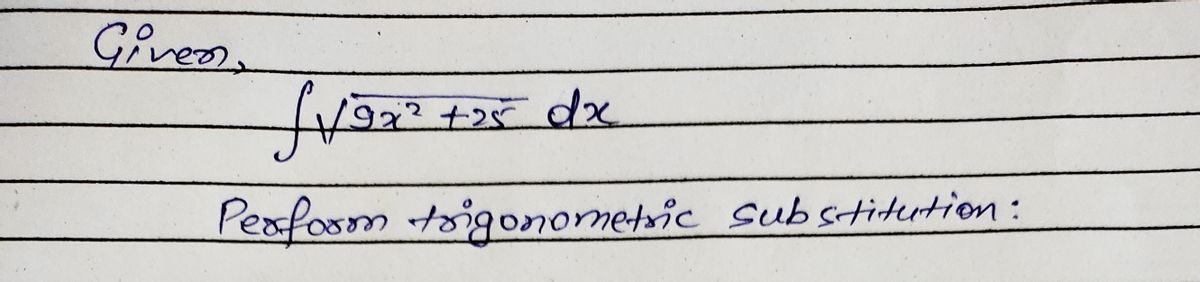 Given,
∫√9x² +25 dx
Perform trigonometric substitution: